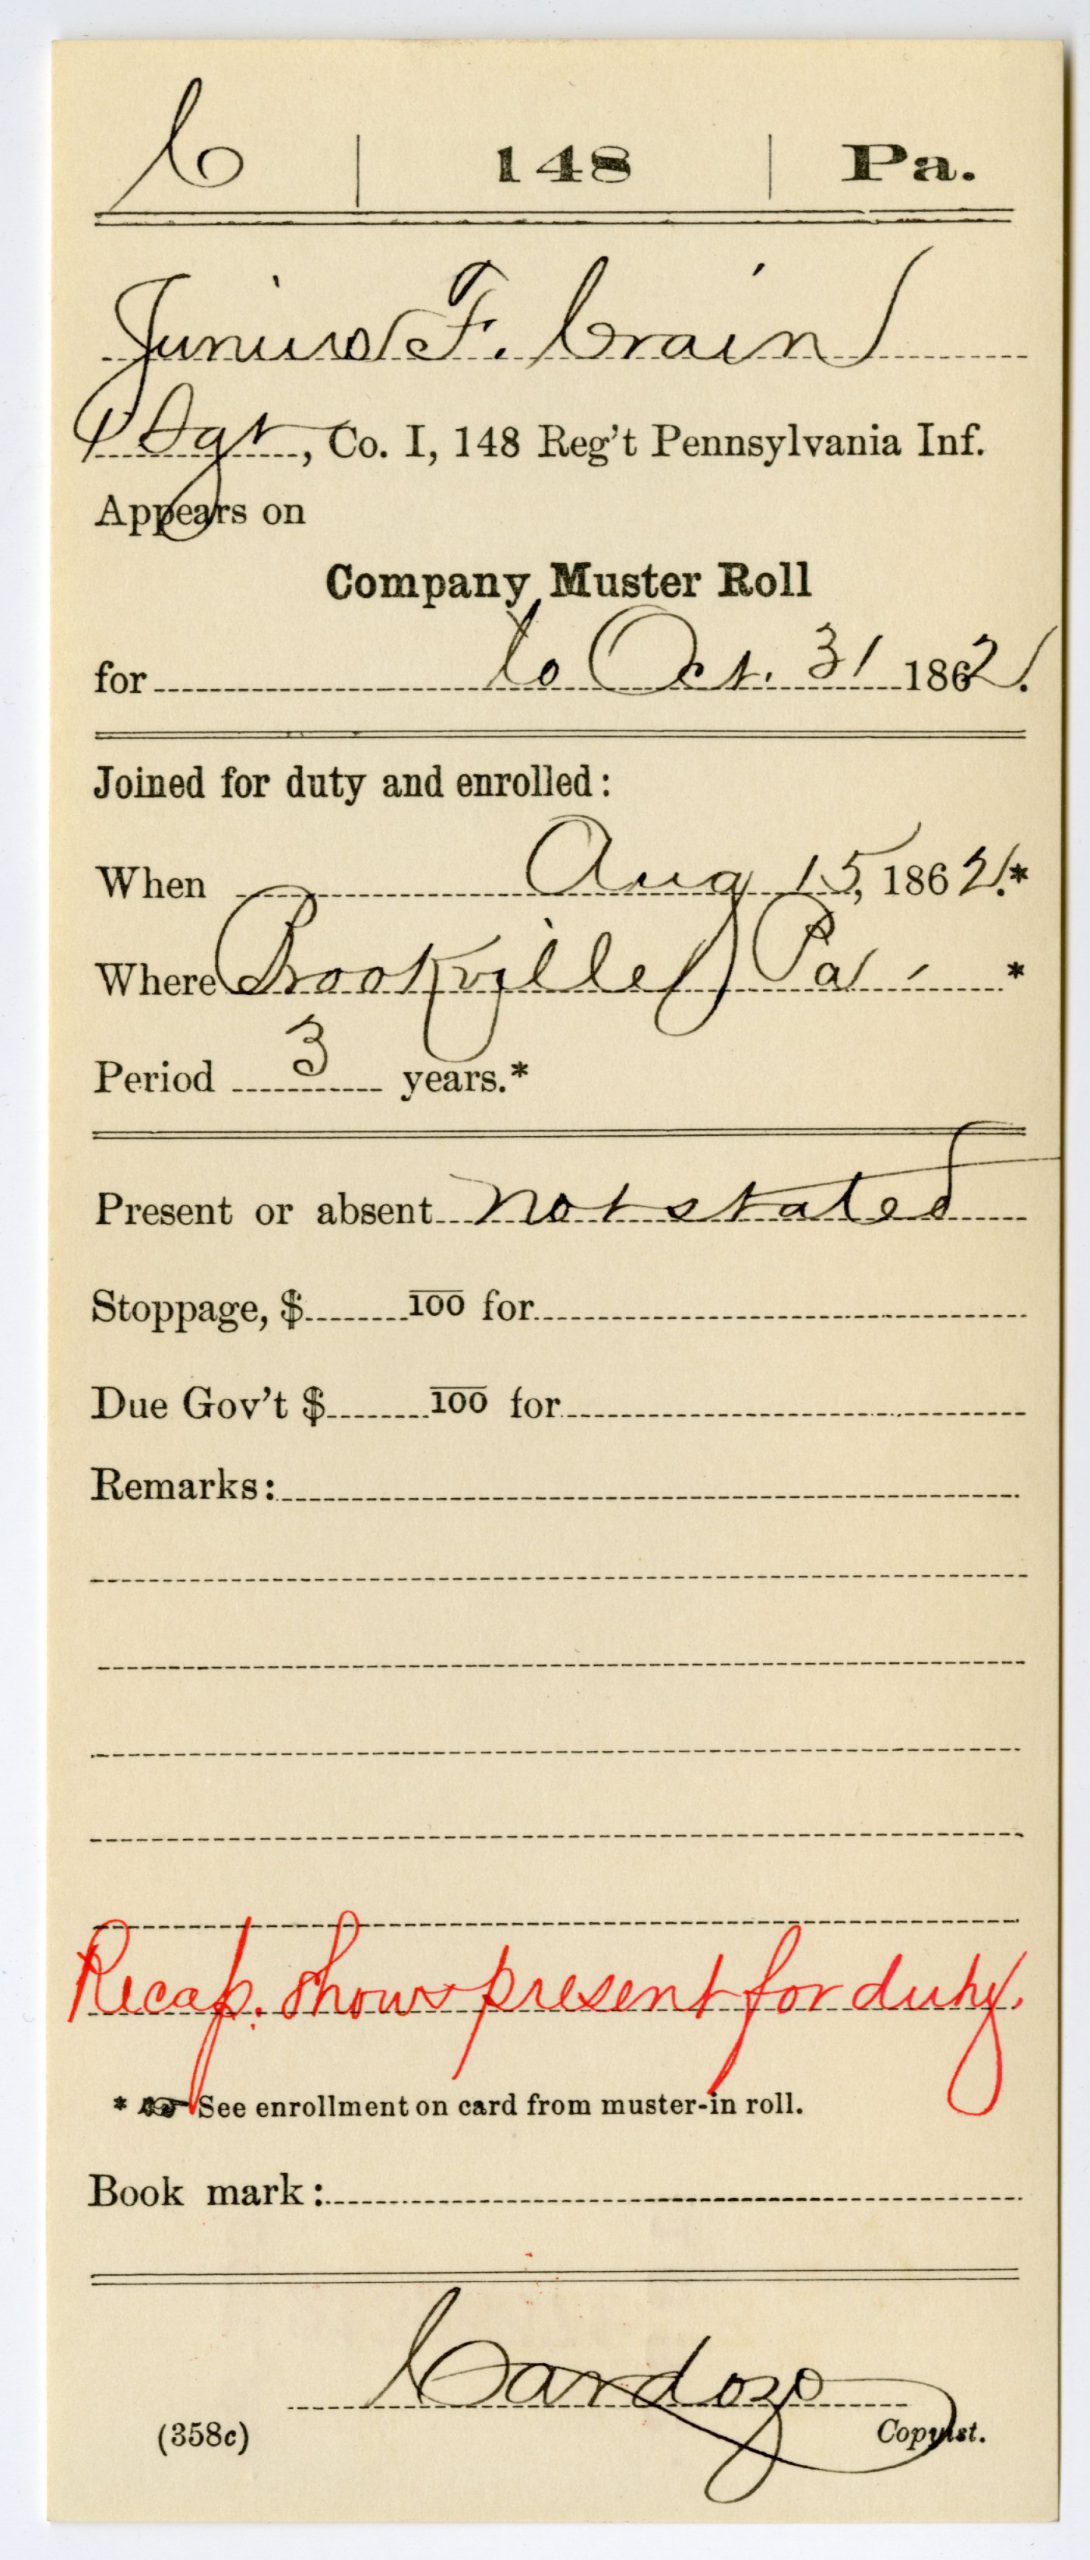 C | 148 | Pa.
Junius F. Crain
1 Sgt, Co. I, 148 Reg't Pennsylvania Inf.
Appears on
Company Muster Roll
for to Oct. 31 1862.
Joined for duty and enrolled:
When Aug 15, 1862.*
Where Brookville Pa. *
Period 3 years.*
Present or absent not stated
Stoppage, $ 100 for
Due Gov't $ 100 for
Remarks:
Recap. shows present for duty.
* ☞ See enrollment on card from muster-in roll.
Book mark:
Cardozo
(358c) Copyist.